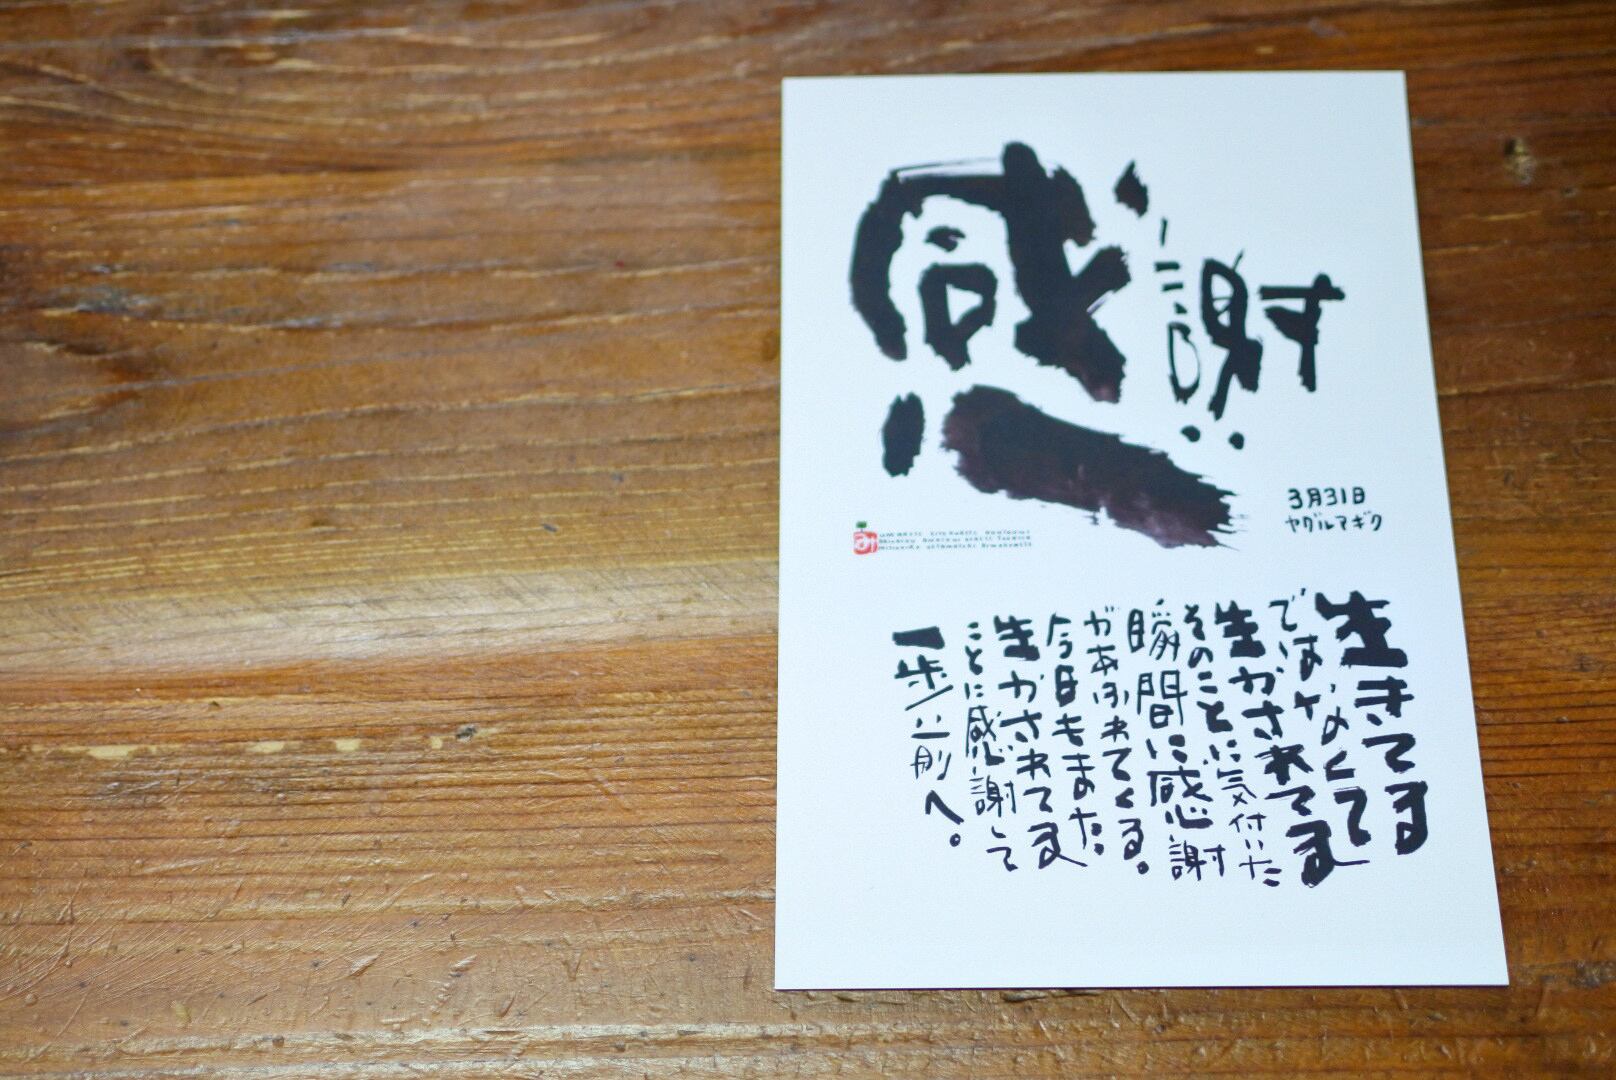 感謝
3月31日
ヤグルマギク
み
生きてる
のでは、なくて
生かされてる
そのことに気付いた
瞬間に感謝
があふれてくる。
今日もまた
生かされてる
ことに感謝して
一歩前へ。